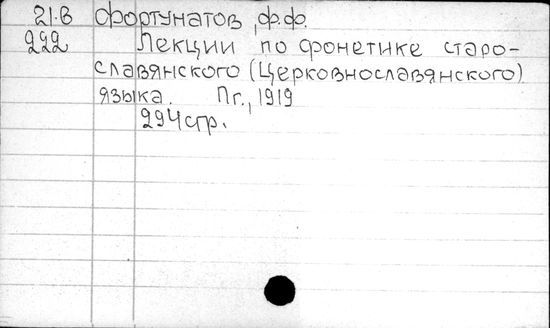 21.В Фортунатов, Ф.Ф.
222 Лекции по фонетике старо-
славянского (Церковнославянского)
языка. Пг., 1919
294 стр.